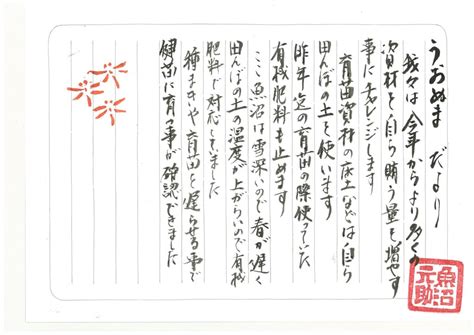 うおぬま だより
我々は今年からより多くの
資材を自ら賄う量を増やす
事にチャレンジします
育苗資材の床土などは自ら
田んぼの土を使います
昨年迄の育苗の際使っていた
有機肥料も止めます
ここ魚沼は雪深いので春が遅く
田んぼの土の温度が上がらいので有機
肥料で対応していました
種まきや育苗を遅らせる事で
健苗に育つ事が確認できました
魚沼
元助